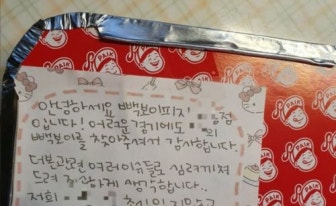 안녕하세요 빽보이피자
점
입니다! 어려운경기에도 의
빽보이를 찾아주셔서 감사합니다.
더본관련 여러이슈들로 심려끼쳐
드려 죄송하게 생각합니다..
저희
PAIK
PAIK
PAIK